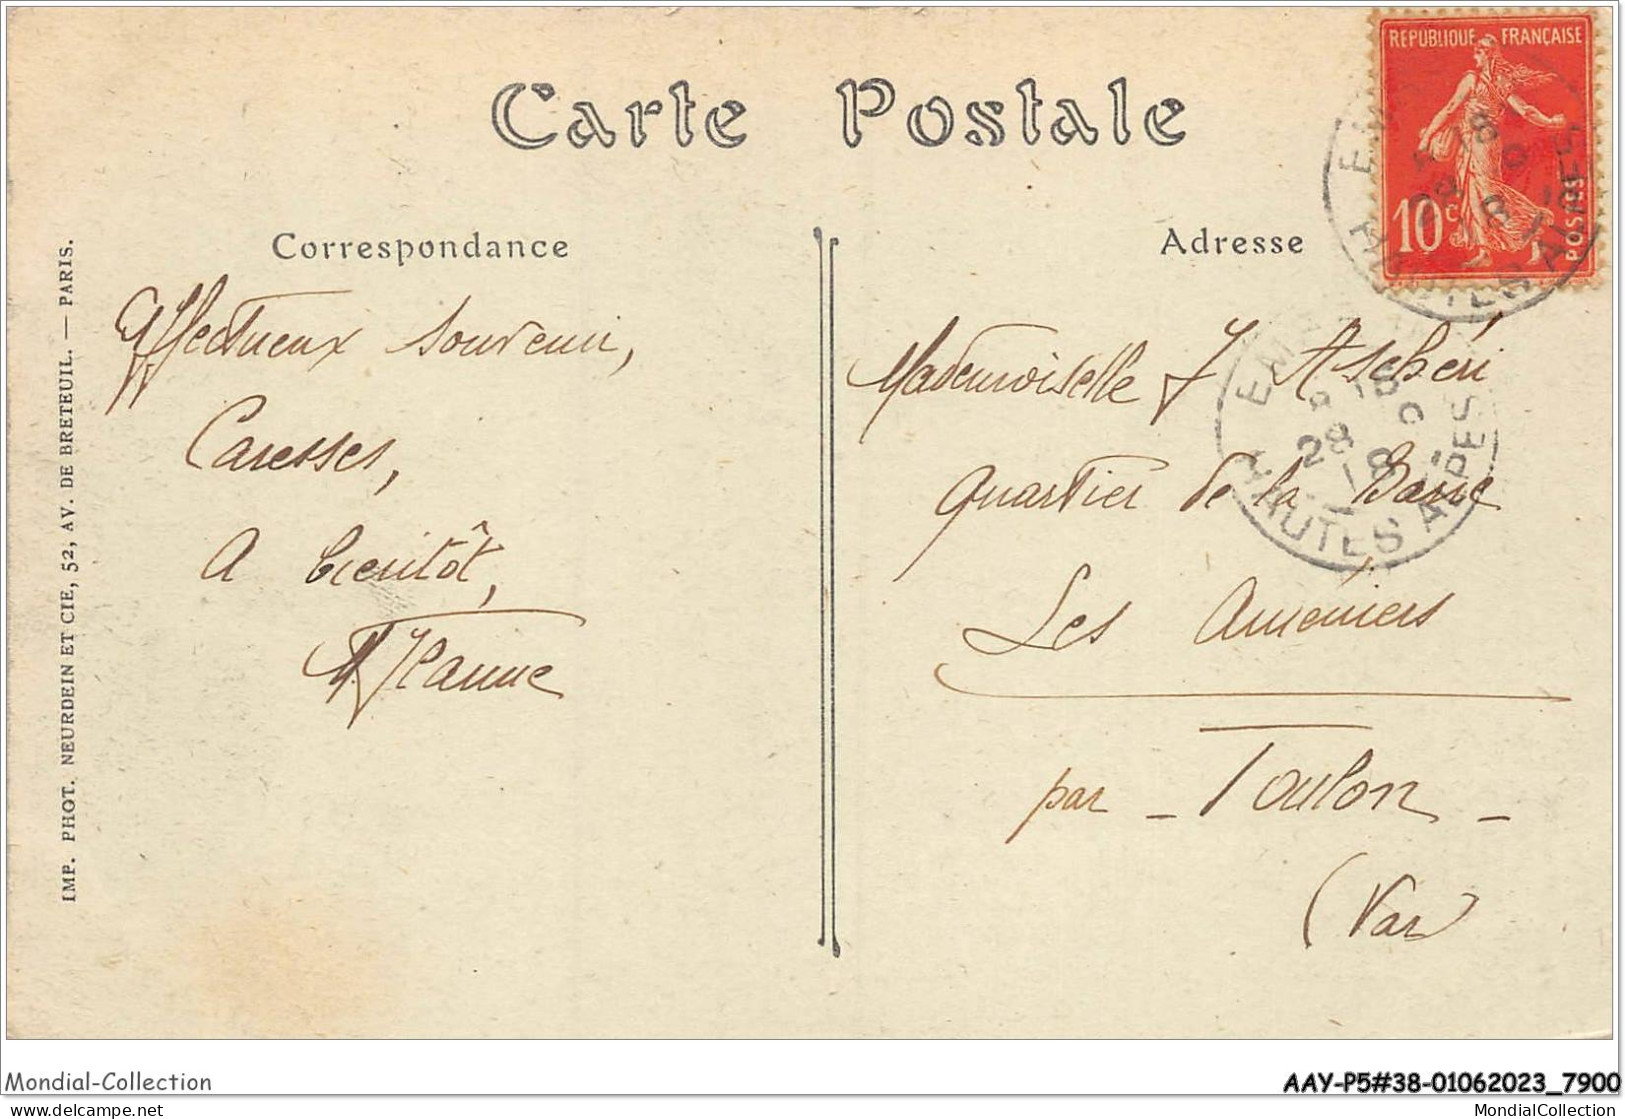 Carte Postale
REPUBLIQUE FRANÇAISE
10c
POSTES
Correspondance
Adresse
Affectueux souvenir,
Caresses,
A bientôt,
M. Jeanne
Mademoiselle J Aschéri
Quartier de la Barre
Les Améniers
par - Toulon -
(Var)
HAUTES ALPES
18
28 9
18
HAUTES ALPES
IMP. PHOT. NEURDEIN ET CIE, 52, AV. DE BRETEUIL. — PARIS.
Mondial-Collection
AAY-P5#38-01062023_7900
delcampe.net
MondialCollection